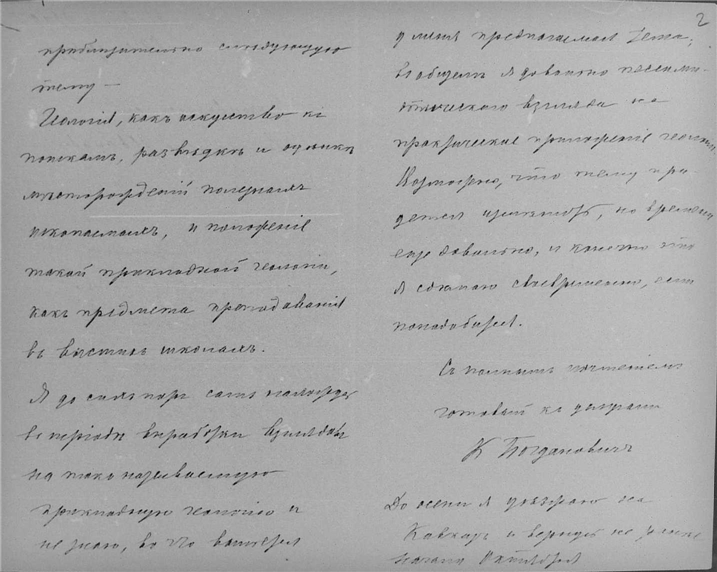 приблизительно следующую
тему —
Геологія, какъ искусство къ
поискамъ, развѣдкѣ и оцѣнкѣ
мѣсторожденій полезныхъ
ископаемыхъ, и положеніе
такой прикладной геологіи,
какъ предмета преподаванія
въ высшихъ школахъ.
Я до сихъ поръ самъ нахожусь
въ періодѣ выработки взглядовъ
на такъ называемую
прикладную геологію и
не знаю, во что выльется
2
у меня предлагаемая тема;
въ общемъ я довольно пессими-
стическаго взгляда на
практическое приложеніе геологіи.
Возможно, что тему при-
дется измѣнить, но времени
еще довольно, и конечно это
я сдѣлаю своевременно, если
понадобится.
Съ полнымъ почтеніемъ
готовый къ услугамъ
К Богдановичъ
До осени я уѣзжаю на
Кавказъ и вернусь не ранѣе
начала Октября